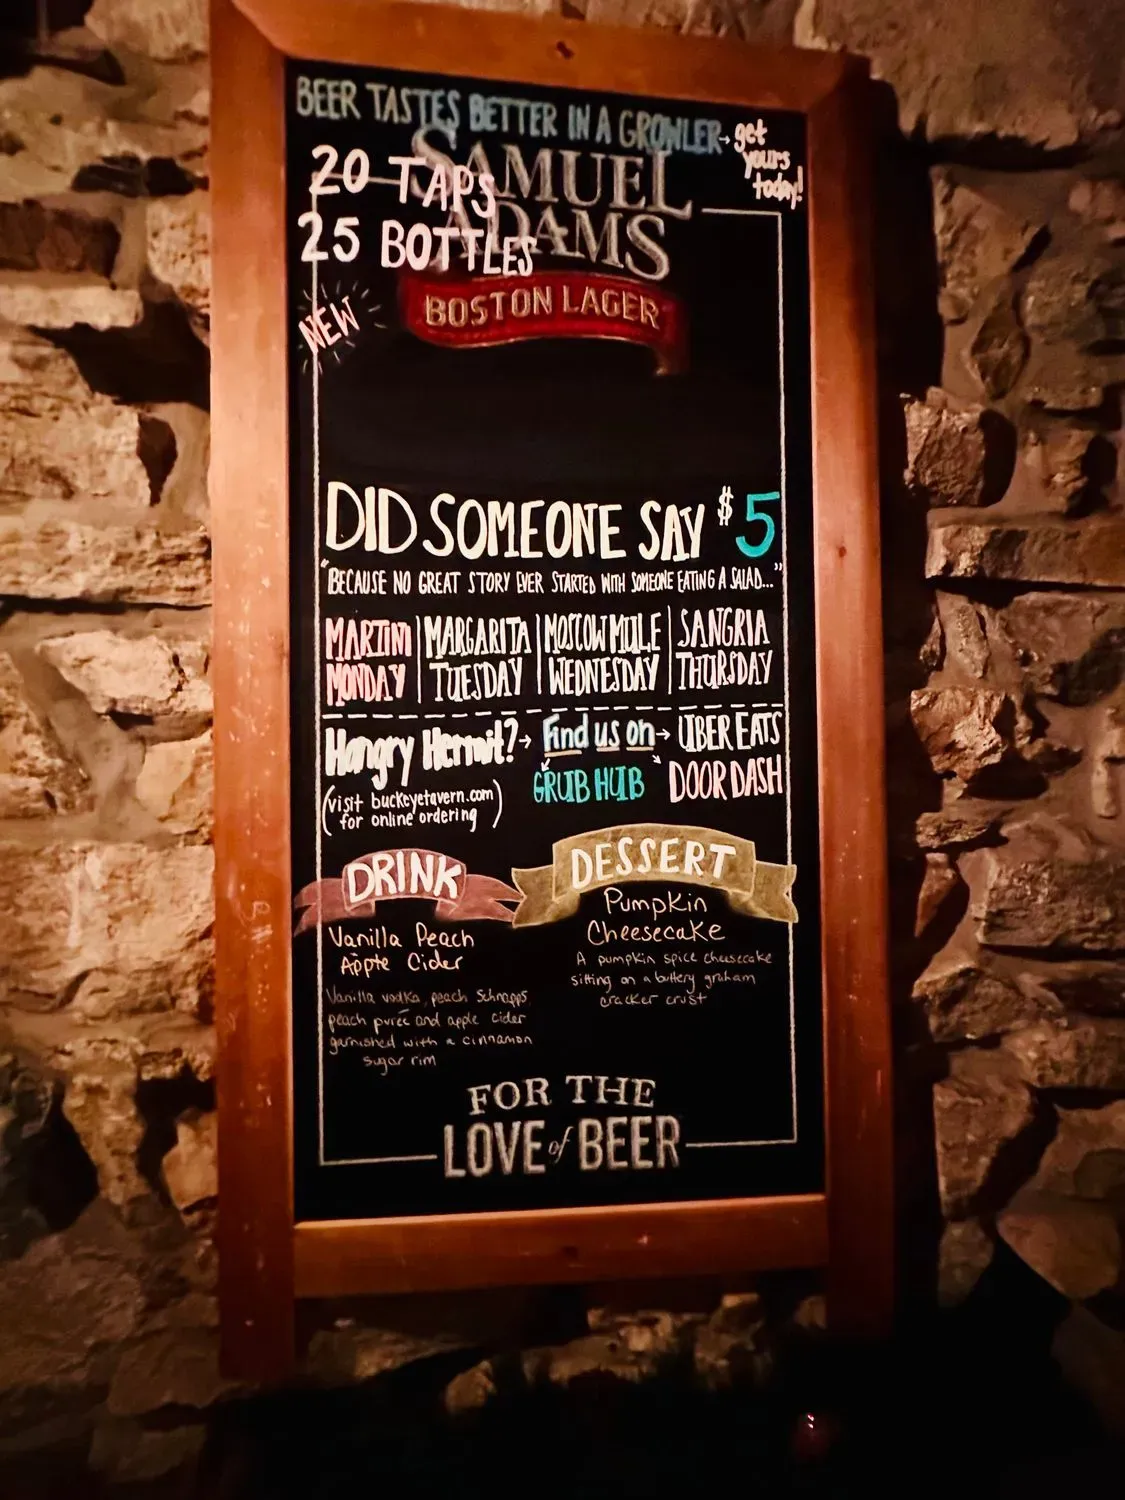 BEER TASTES BETTER IN A GROWLER → get yours today!
SAMUEL
ADAMS
20 TAPS
25 BOTTLES
BOSTON LAGER
NEW
DID SOMEONE SAY $5
"BECAUSE NO GREAT STORY EVER STARTED WITH SOMEONE EATING A SALAD..."
MARTINI MONDAY | MARGARITA TUESDAY | MOSCOW MULE WEDNESDAY | SANGRIA THURSDAY
Hangry Hermit? → Find us on → UBER EATS
GRUB HUB DOOR DASH
(visit buckeyetavern.com
for online ordering)
DRINK
Vanilla Peach
Apple Cider
Vanilla vodka, peach Schnapps,
peach purée and apple cider
garnished with a cinnamon
sugar rim
DESSERT
Pumpkin
Cheesecake
A pumpkin spice cheesecake
sitting on a buttery graham
cracker crust
FOR THE
LOVE of BEER